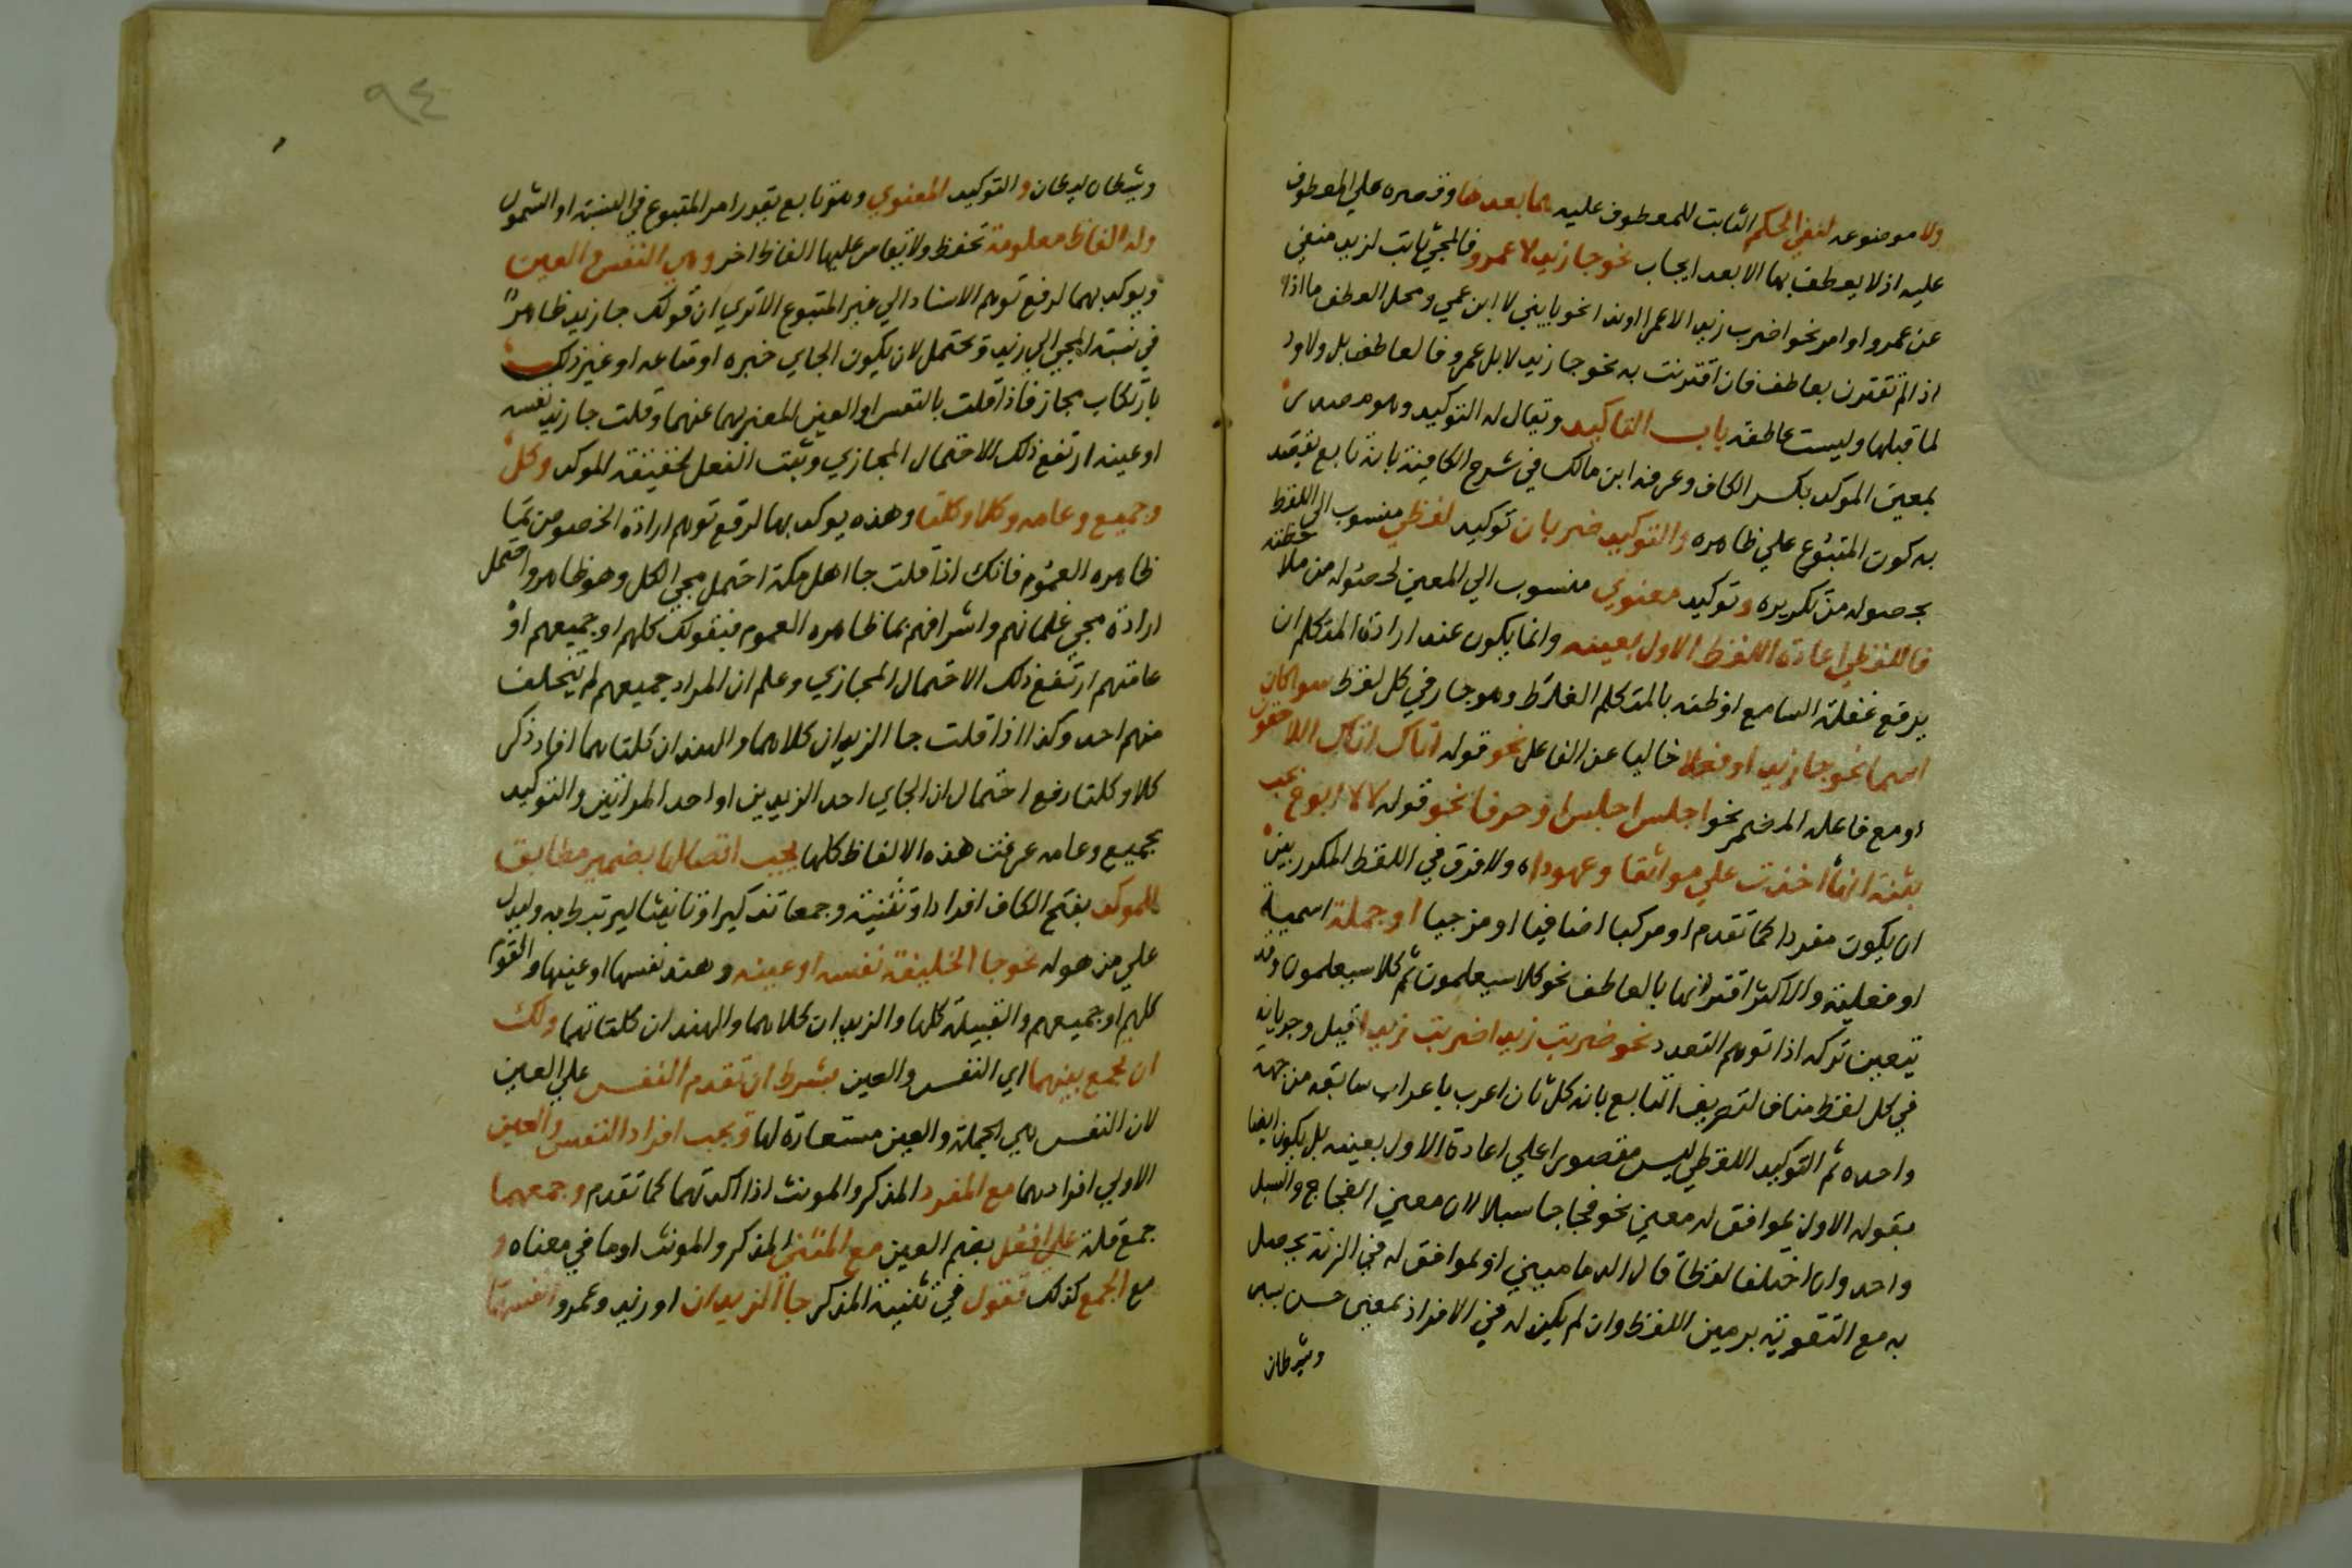 ولا موضوعه لنفي الحكم الثابت للمعطوف عليه عما بعدها وقصره على المعطوف
عليه اذ لا يعطف بها الا بعد ايجاب نحو جا زيد لا عمرو فالمجي ثابت لزيد منفي
عن عمرو او امر نحو اضرب زيدا لا عمرا او ندا نحو يا بني لا ابن عمي ومحل العطف بها اذا
اذا لم تقترن بعاطف فان اقترنت به نحو جا زيد لا بل عمرو فالعاطف بل ولا رد
لما قبلها وليست عاطفة باب التاكيد ويقال له التوكيد وهو مصدر
بمعنى الموكد بكسر الكاف وعرفه ابن مالك في شرح الكافية بانه تابع يقصد
به كون المتبوع على ظاهره والتوكيد ضربان توكيد لفظي منسوب الى اللفظ
بحصوله من تكريره وتوكيد معنوي منسوب الى المعنى لحصوله من ملاحظته
فاللفظي اعادة اللفظ الاول بعينه وانما يكون عند ارادة المتكلم ان
يدفع غفلة السامع او ظنه بالمتكلم الغلط وهو جار في كل لفظ سوا كان
اسما نحو جا زيد او فعلا خاليا عن الفاعل نحو قوله اتاك اتاك اللاحقون
او مع فاعله المضمر نحو اجلس اجلس او حرفا نحو قوله لا لا ابوح بحب
بثنة انها اخذت علي مواثقا وعهودا ولا فرق في اللفظ المكرر بين
ان يكون مفردا كما تقدم او مركبا اضافيا او مزجيا او جملة اسمية
او فعلية والاكثر اقترانها بالعاطف نحو كلا سيعلمون ثم كلا سيعلمون وقد
يتعين تركه اذا توهم التعدد نحو ضربت زيدا ضربت زيدا قيل وجريانه
في كل لفظ مناف لتعريف التابع بانه كل ثان اعرب باعراب سابقه من جهة
واحده ثم التوكيد اللفظي ليس مقصورا على اعادة الاول بعينه بل يكون ايضا
بقوله الاول بموافق له معنى نحو فجاجا سبلا لان معنى الفجاج والسبل
واحد وان اختلفا لفظا قال الدماميني او بموافق له في الزنة يحصل
به مع التقوية تزيين اللفظ وان لم يكن له في الافراد معنى حسن بسن
وشيطان
٩٤
وشيطان ليطان والتوكيد المعنوي وهو تابع يقرر امر المتبوع في النسبة او الشمول
وله الفاظ معلومة تحفظ ولا يقاس عليها الفاظ اخر وهي النفس والعين
ويوكد بهما لرفع توهم الاسناد الى غير المتبوع الا ترى ان قولك جا زيد ظاهر
في نسبة المجي الى زيد ويحتمل لان يكون الجاي خبره او متاعه او غير ذلك
بارتكاب مجاز فاذا قلت بالنفس او العين المعبر بهما عنهما وقلت جا زيد نفسه
او عينه ارتفع ذلك الاحتمال المجازي وثبت الفعل لحقيقة الموكد وكل
وجميع وعامه وكلا وكلتا وهذه يوكد بها لرفع توهم ارادة الخصوص بما
ظاهره العموم فانك اذا قلت جا اهل مكة احتمل مجي الكل وهو ظاهر واحتمل
ارادة مجي غلمانهم واشرافهم بما ظاهره العموم فبقولك كلهم او جميعهم او
عامتهم ارتفع ذلك الاحتمال المجازي وعلم ان المراد جميعهم لم يتخلف
منهم احد وكذا اذا قلت جا الزيدان كلاهما والهندان كلتاهما افاد ذكر
كلا وكلتا رفع احتمال ان الجاي احد الزيدين او احد المراتين والتوكيد
بجميع وعامه غريب هذه الالفاظ كلها يجب اتصالها بضمير مطابق
للموكد بفتح الكاف افرادا وتثنية وجمعا تذكيرا وتانيثا ليرتبط به وليدل
على من هو له نحو جا الخليفة نفسه او عينه وهند نفسها او عينها والقوم
كلهم او جميعهم والقبيلة كلها والزيدان كلاهما والهندان كلتاهما ولك
ان تجمع بينهما اي النفس والعين بشرط ان تقدم النفس على العين
لان النفس هي الجملة والعين مستعارة لها ويجب افراد النفس والعين
الاولى افرادهما مع المفرد المذكر والمونث اذا اكدتهما كما تقدم وجمعهما
جمع قلة على افعل بضم العين مع المثنى المذكر والمونث او ما في معناه و
مع الجمع كذلك تقول في تثنية المذكر جا الزيدان او زيد وعمرو انفسهما